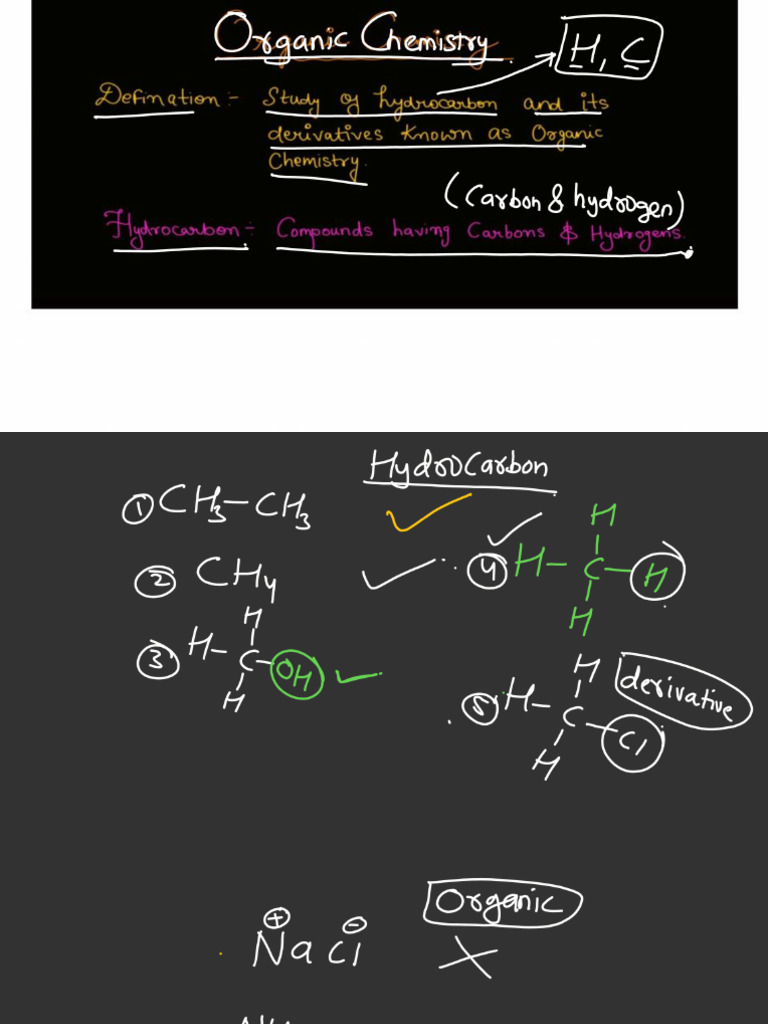 Organic Chemistry
H, C
Defination:- Study of hydrocarbon and its
derivatives known as Organic
Chemistry.
(Carbon & hydrogen)
Hydrocarbon:- Compounds having Carbons & Hydrogens.
Hydrocarbon
① CH₃-CH₃
② CH₄
④ H
H-C-H
H
③ H
H-C-OH
H
derivative
⑤ H
H-C-Cl
H
Organic
⊕ ⊖
NaCl X